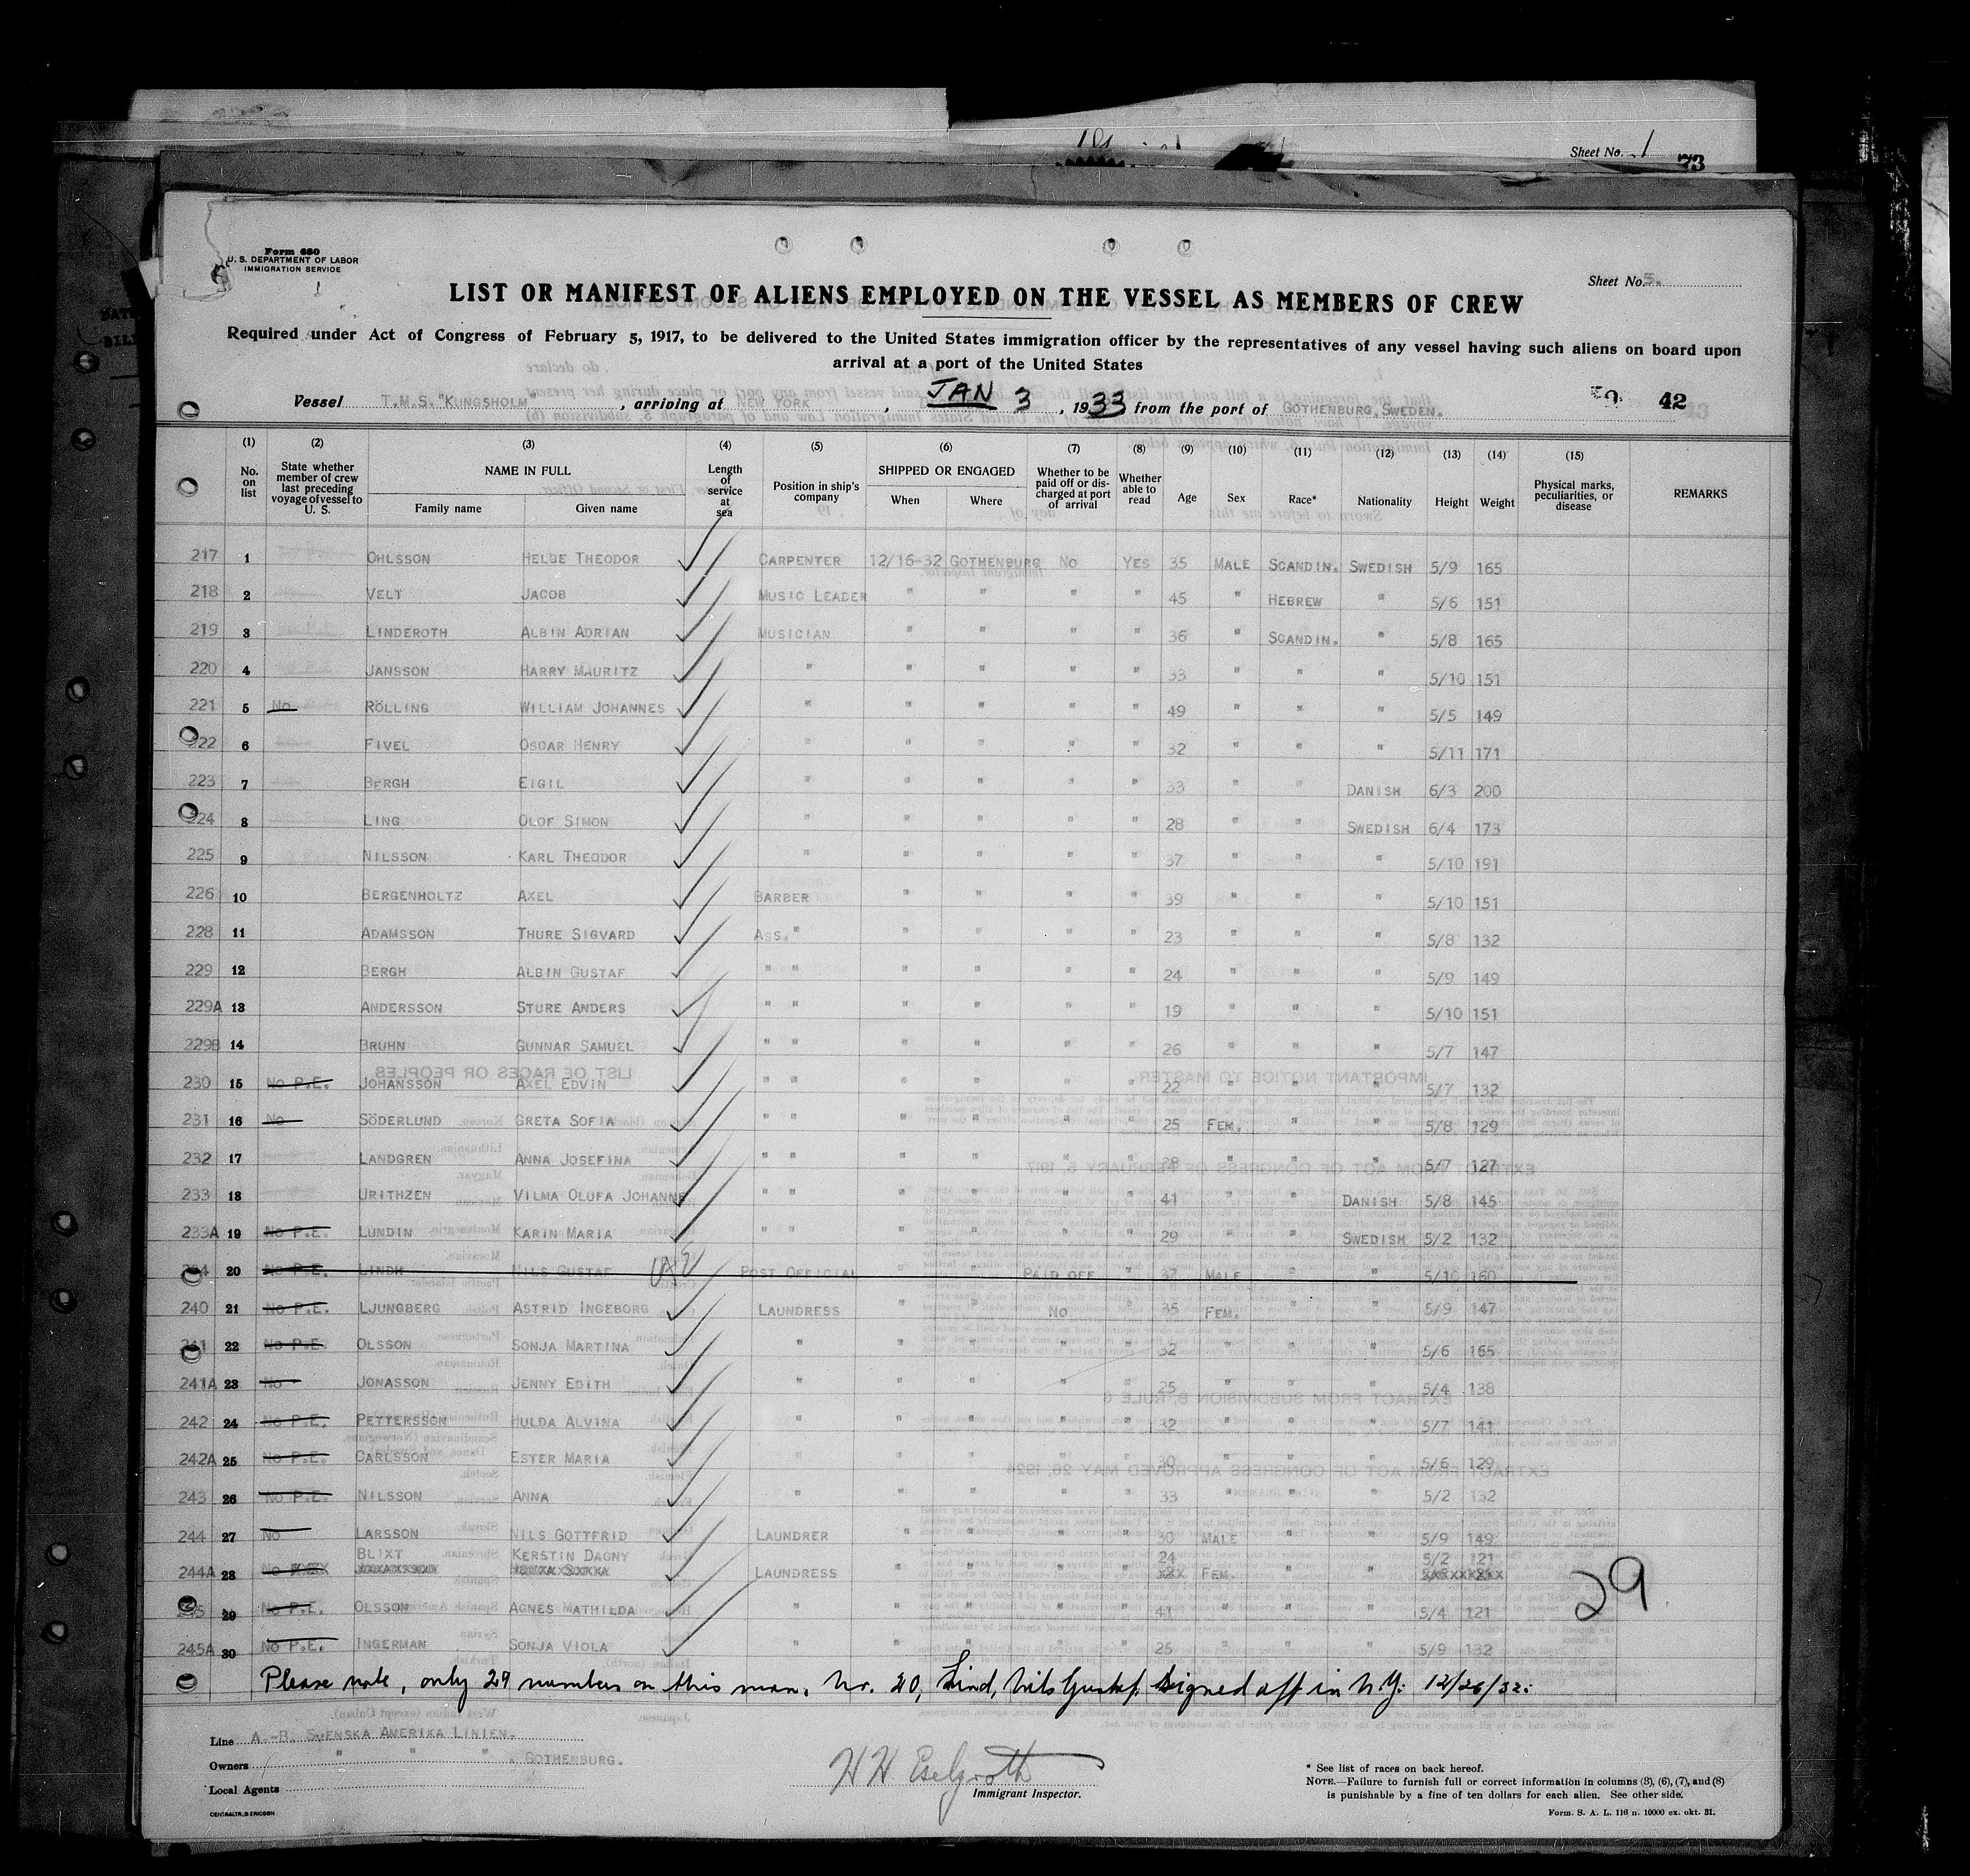 Sheet No. 1
73
Form 680
U. S. DEPARTMENT OF LABOR
IMMIGRATION SERVICE
Sheet No. 5.
LIST OR MANIFEST OF ALIENS EMPLOYED ON THE VESSEL AS MEMBERS OF CREW
Required under Act of Congress of February 5, 1917, to be delivered to the United States immigration officer by the representatives of any vessel having such aliens on board upon
arrival at a port of the United States
Vessel T.M.S. "KUNGSHOLM", arriving at NEW YORK, JAN 3, 1933 from the port of GOTHENBURG, SWEDEN. 42
(1) (2) (3) (4) (5) (6) (7) (8) (9) (10) (11) (12) (13) (14) (15)
No. on list State whether member of crew last preceding voyage of vessel to U. S. NAME IN FULL Family name Given name Length of service at sea Position in ship's company SHIPPED OR ENGAGED When Where Whether to be paid off or discharged at port of arrival Whether able to read Age Sex Race* Nationality Height Weight Physical marks, peculiarities, or disease REMARKS
217 1 OHLSSON HELGE THEODOR CARPENTER 12/16-32 GOTHENBURG NO YES 35 MALE SCANDIN. SWEDISH 5/9 165
218 2 VELT JACOB MUSIC LEADER " " " " 45 " HEBREW " 5/6 151
219 3 LINDEROTH ALBIN ADRIAN MUSICIAN " " " " 36 " SCANDIN. " 5/8 165
220 4 JANSSON HARRY MAURITZ " " " " " 33 " " " 5/10 151
221 5 No RÖLLING WILLIAM JOHANNES " " " " " 49 " " " 5/5 149
222 6 FIVEL OSCAR HENRY " " " " " 32 " " " 5/11 171
223 7 BERGH EIGIL " " " " " 33 " " DANISH 6/3 200
224 8 LING OLOF SIMON " " " " " 28 " " SWEDISH 6/4 173
225 9 NILSSON KARL THEODOR " " " " " 37 " " " 5/10 191
226 10 BERGENHOLTZ AXEL BARBER " " " " 39 " " " 5/10 151
228 11 ADAMSSON THURE SIGVARD ASS. " " " " " 23 " " " 5/8 132
229 12 BERGH ALBIN GUSTAF " " " " " " 24 " " " 5/9 149
229A 13 ANDERSSON STURE ANDERS " " " " " " 19 " " " 5/10 151
229B 14 BRUHN GUNNAR SAMUEL " " " " " " 26 " " " 5/7 147
230 15 No P.E. JOHANSSON AXEL EDVIN " " " " " " 22 " " " 5/7 132
231 16 No SÖDERLUND GRETA SOFIA " " " " " " 25 FEM. " " 5/8 129
232 17 LANDGREN ANNA JOSEFINA " " " " " " " " " 5/7 127
233 18 URITHZEN VILMA OLUFA JOHANNE " " " " " " 41 " " DANISH 5/8 145
233A 19 No P.E. LUNDIN KARIN MARIA " " " " " " 29 " " SWEDISH 5/2 132
234 20 No P.E. LINDH NILS GUSTAF POST OFFICIAL " " PAID OFF " 37 MALE " " 5/10 160
240 21 No P.E. LJUNGBERG ASTRID INGEBORG LAUNDRESS " " No " 35 FEM. " " 5/9 147
241 22 No P.E. OLSSON SONJA MARTINA " " " " " 32 " " " 5/6 165
241A 23 No JONASSON JENNY EDITH " " " " " 25 " " " 5/4 138
242 24 No P.E. PETTERSSON HULDA ALVINA " " " " " 32 " " " 5/7 141
242A 25 No P.E. CARLSSON ESTER MARIA " " " " " 30 " " " 5/6 129
243 26 No P.E. NILSSON ANNA " " " " " 33 " " " 5/2 132
244 27 No LARSSON NILS GOTTFRID LAUNDRER " " " " 30 MALE " " 5/9 149
BLIXT KERSTIN DAGNY 24 5/2 121
244A 28 No LAUNDRESS " " " " FEM. " "
245 29 No P.E. OLSSON AGNES MATHILDA " " " " " 41 " " " 5/4 121
245A 30 No P.E. INGERMAN SONJA VIOLA " " " " " 25 " " " 5/9 132
29
Please note, only 29 numbers on this man. Nr. 20, Lind, Nils Gustaf. Signed off in N.Y. 12/26/32.
Line A.-B. SVENSKA AMERIKA LINIEN.
Owners " " ", GOTHENBURG.
Local Agents
CENTRALTR., G. ERICSON
Immigrant Inspector.
* See list of races on back hereof.
NOTE.—Failure to furnish full or correct information in columns (3), (6), (7), and (8)
is punishable by a fine of ten dollars for each alien. See other side.
Form. S. A. L. 116 n. 10000 ex. okt. 31.